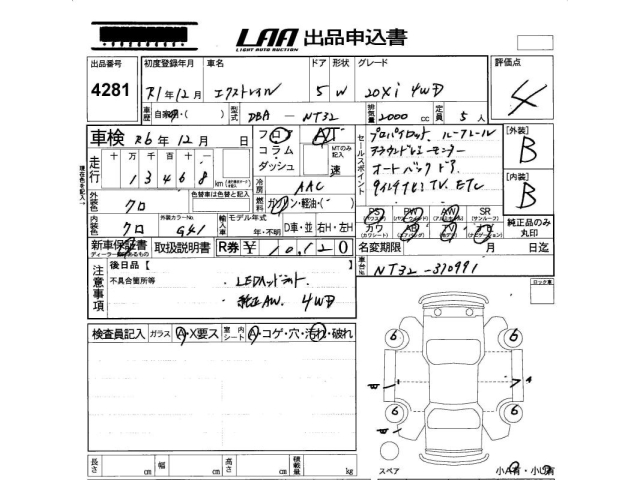 LAA 出品申込書
LIGHT AUTO AUCTION
出品番号 初度登録年月 車名 ドア 形状 グレード 評価点
4281 R1年12月 エクストレイル 5 W 20Xi 4WD 4
車歴 自家用・( ) 型式 DBA - NT32 排気量 2000 cc 定員 5 人
車検 R6年12月 日 フロア AT
コラム
ダッシュ MTのみ記入 速
セールスポイント プロパイロット ルーフレール
アラウンドビューモニター
オートバックドア
TV. ETC
[外装] B
[内装] B
現在色を記入→
走行 十万千百十 13468 km
冷房 AAC
外装色 クロ 色替車は色替と記入
燃料 ガソリン・軽油・( )
内装色 クロ 外装カラーNo. G41 輸入車 モデル年式 年・不明 D車・並 右H・左H
PS PW AW SR
カワ AB TV ナビ
純正品のみ丸印
新車保証書 取扱説明書 R券 ¥ 10,120 名変期限 月 日迄
ディーラー
車台No. NT32-370991
注意事項 後日品【
不具合箇所等
・LEDヘッドライト
・純正AW. 4WD
ロック車
検査員記入 ガラス A・X要ス 室内シート A・コゲ・穴・汚れ・破れ
6 6
W
6 6
長さ cm 幅 cm 高さ cm 積載量 kg
スペア 小A有・小